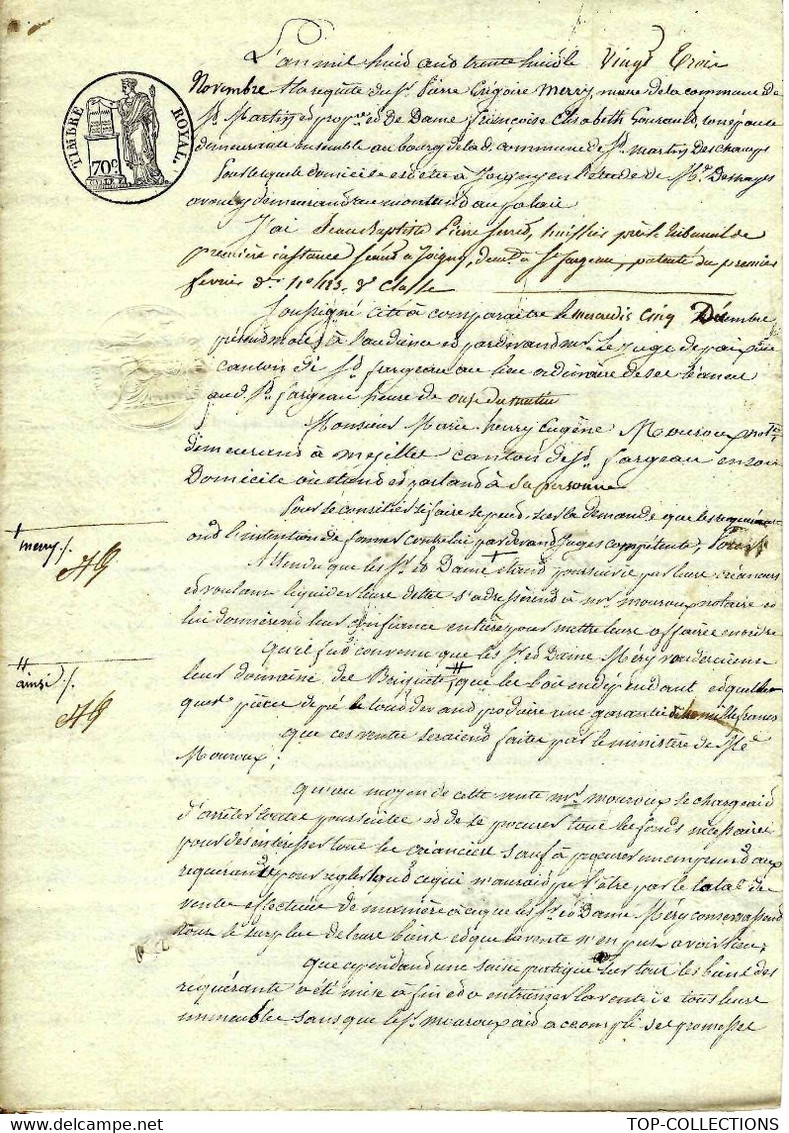 L'an mil huit cent trente huit le Vingt Trois
Novembre a la requete du Sr. Pierre Grégoire Merry, maire de la commune de
St. Martin et propre. et De Dame Françoise Elisabeth Gourault, son épouse
demeurants ensemble au bourg de lad. commune de St. martin des champs
Pour lesquels domicile est élu à Joigny en l'etude de Me. Desmayes
avoué y demeurant
J'ai Jean Baptiste Pierre huissier près le tribunal de
première instance séant à Joigny, demt. à St. fargeau, patenté du premier
fevrier dr. no. 123. classe
Soussigné cité à comparaitre le mercredi cinq Décembre
à l'audience et pardevant mr. Le Juge de paix du
canton de St. fargeau au lieu ordinaire de ses séances
aud. St. fargeau heure de onze du matin
Monsieur Marie henry Eugène Mouroux notre.
demeurant à mezilles canton de St. fargeau en son
Domicile où étant et parlant à sa personne
Pour se concilier si faire se peut, sur la demande que les requérants
ont l'intention de former contre lui pardevant Juges compétents,
TIMBRE ROYAL
70c.
† merry /.
Attendu que les Sr. et Dame † étant poursuivis par leurs créanciers
et voulant liquider leurs dettes s'adressèrent à mr. mouroux notaire et
lui donnèrent leur confiance entière pour mettre leurs affaires en ordre
Qu'il fut convenu que les Sr. et Dame Méry vendraient
†† ainsi /.
leur domaine des †† que les bois en dépendant et quelques
pièces de pré le tout devant produire une garantie de mille francs
que ces ventes seraient faites par le ministère de Me.
Mouroux;
qu'au moyen de cette vente mr. mouroux se chargeait
d'arrêter toutes poursuites et de se procurer tous les fonds nécessaires
pour désintéresser tous les créanciers sauf à procurer un emprunt aux
requérants pour regler ce qui n'aurait pu l'être par le total de
vente effectuée de manière à ce que les Sr. et Dame Méry conservassent
tous le surplus de leurs biens et que la vente n'en put avoir lieu;
que cependant une saisie pratiquée sur tous les biens des
requérants a été mise à fin et a entrainé la vente de tous leurs
immeubles sans que le Sr. mouroux ait accompli ses promesses
TOP-COLLECTIONS